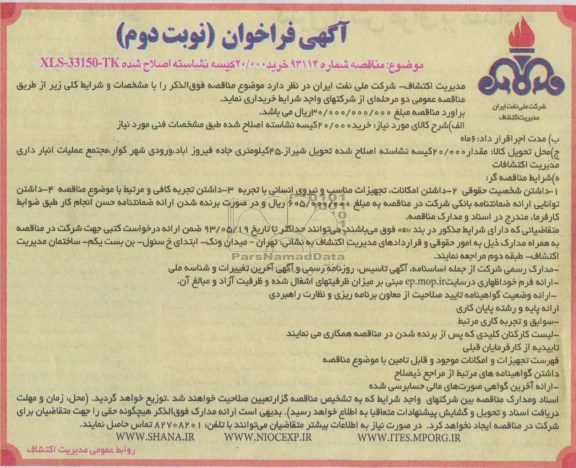 آگهی فراخوان (نوبت دوم)
موضوع: مناقصه شماره ۹۳۱۱۴ خرید ۲۰/۰۰۰کیسه نشاسته اصلاح شده XLS-33150-TK
شرکت ملی نفت ایران
مدیریت اکتشاف
مدیریت اکتشاف- شرکت ملی نفت ایران در نظر دارد موضوع مناقصه فوق‌الذکر را با مشخصات و شرایط کلی زیر از طریق
مناقصه عمومی دو مرحله‌ای از شرکتهای واجد شرایط خریداری نماید.
براورد مناقصه مبلغ ۳۰/۰۰۰/۰۰۰/۰۰۰ریال می باشد.
الف)شرح کالای مورد نیاز: خرید۲۰/۰۰۰کیسه نشاسته اصلاح شده طبق مشخصات فنی مورد نیاز
ب) مدت اجراقرار داد:۶ماه
ج)محل تحویل کالا: مقدار۲۰/۰۰۰کیسه نشاسته اصلاح شده تحویل شیراز.۴۵کیلومتری جاده فیروز اباد،ورودی شهر کوار،مجتمع عملیات انبار داری
مدیریت اکتشافات
ه)شرایط مناقصه گر:
۱-داشتن شخصیت حقوقی ۲-داشتن امکانات، تجهیزات مناسب و نیروی انسانی با تجربه ۳-داشتن تجربه کافی و مرتبط با موضوع مناقصه ۴-داشتن
توانایی ارائه ضمانتنامه بانکی شرکت در مناقصه به مبلغ ۶۰۵/۰۰۰/۰۰۰ ریال و در صورت برنده شدن ارائه ضمانتنامه حسن انجام کار طبق ضوابط
کارفرما، مندرج در اسناد و مدارک مناقصه.
متقاضیانی که دارای شرایط مذکور در بند «ه» فوق می‌باشند، می‌توانند حداکثر تا تاریخ ۹۳/۰۵/۱۹ ضمن ارائه درخواست کتبی جهت شرکت در مناقصه
به همراه مدارک ذیل به امور حقوقی و قراردادهای مدیریت اکتشاف به نشانی: تهران - میدان ونک- ابتدای خ سئول- بن بست یکم- ساختمان مدیریت
اکتشاف- طبقه دوم مراجعه نمایند.
-مدارک رسمی شرکت از جمله اساسنامه، آگهی تاسیس، روزنامه رسمی و آگهی آخرین تغییرات و شناسه ملی
-ارائه فرم خوداظهاری درسایتep.mop.ir مبنی بر میزان ظرفیتهای اشغال شده و ظرفیت آزاد و مبالغ آن.
-ارائه وضعیت گواهینامه تایید صلاحیت از معاون برنامه ریزی و نظارت راهبردی
ارائه پایه و رشته پایان کاری
-سوابق و تجربه کاری مرتبط
-لیست کارکنان کلیدی که پس از برنده شدن در مناقصه همکاری می نمایند
تاییدیه از کارفرمایان قبلی
فهرست تجهیزات و امکانات موجود و قابل تامین با موضوع مناقصه
داشتن گواهینامه های مرتبط از مراجع ذیصلاح
-ارائه آخرین گواهی صورت‌های مالی حسابرسی شده
اسناد ومدارک مناقصه بین شرکتهای واجد شرایط که به تشخیص مناقصه گزارتعیین صلاحیت خواهند شد .توزیع خواهد گردید. (محل، زمان و مهلت
دریافت اسناد و تحویل و گشایش پیشنهادات متعاقبا به اطلاع خواهد رسید). بدیهی است ارائه مدارک فوق‌الذکر هیچگونه حقی را جهت متقاضیان برای
شرکت در مناقصه ایجاد نخواهد کرد. در صورت نیاز به اطلاعات بیشتر متقاضیان می‌توانند با تلفن: ۸۲۷۰۸۲۰۱ تماس حاصل نمایند.
WWW.SHANA.IR WWW.NIOCEXP.IR WWW.ITES.MPORG.IR
روابط عمومی مدیریت اکتشاف
ParsNamadData